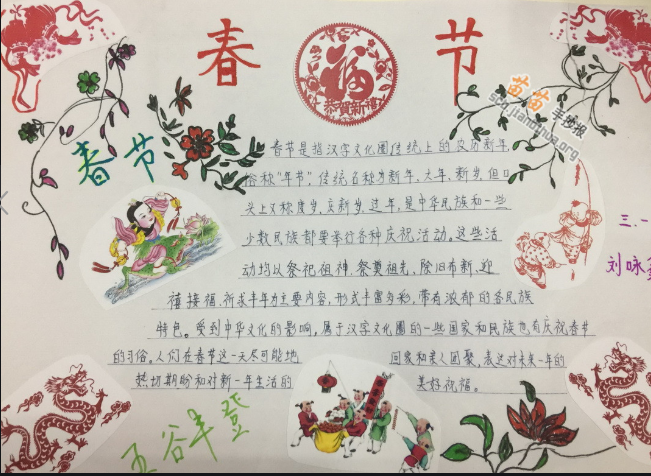 春 节
恭贺新禧
苗苗手抄报
scq.jianghua.org
春节
春节是指汉字文化圈传统上的农历新年,
俗称"年节",传统名称为新年、大年、新岁,但口
头上又称度岁、庆新岁、过年,是中华民族和一些
少数民族都要举行各种庆祝活动。这些活
动均以祭祀祖神、祭奠祖先、除旧布新、迎
禧接福、祈求丰年为主要内容,形式丰富多彩,带有浓郁的各民族
特色。受到中华文化的影响,属于汉字文化圈的一些国家和民族也有庆祝春节
的习俗。人们在春节这一天尽可能地 回家和亲人团聚,表达对未来一年的
热切期盼和对新一年生活的 美好祝福。
三.一
刘咏
五谷丰登